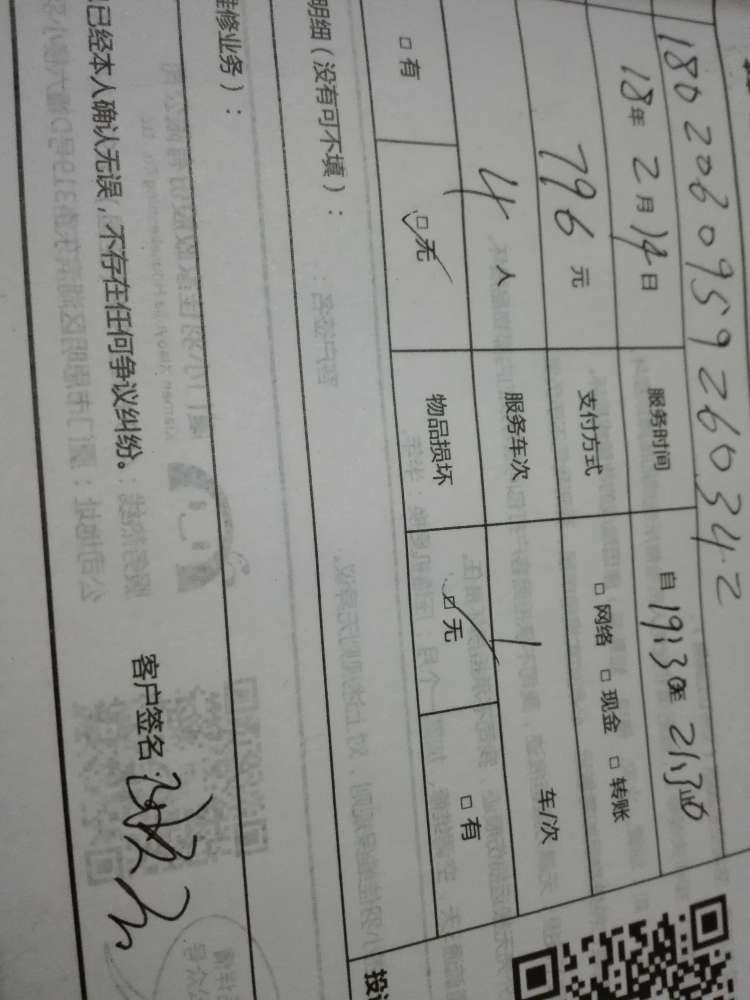 1802060959260342
18年2月14日 服务时间 自19:30至21:30
796元 支付方式 □网络 □现金 □转账
4人 服务车次 1 车/次
□有 □无 物品损坏 □无 □有
明细（没有可不填）：
维修业务）：
已经本人确认无误，不存在任何争议纠纷。
客户签名：